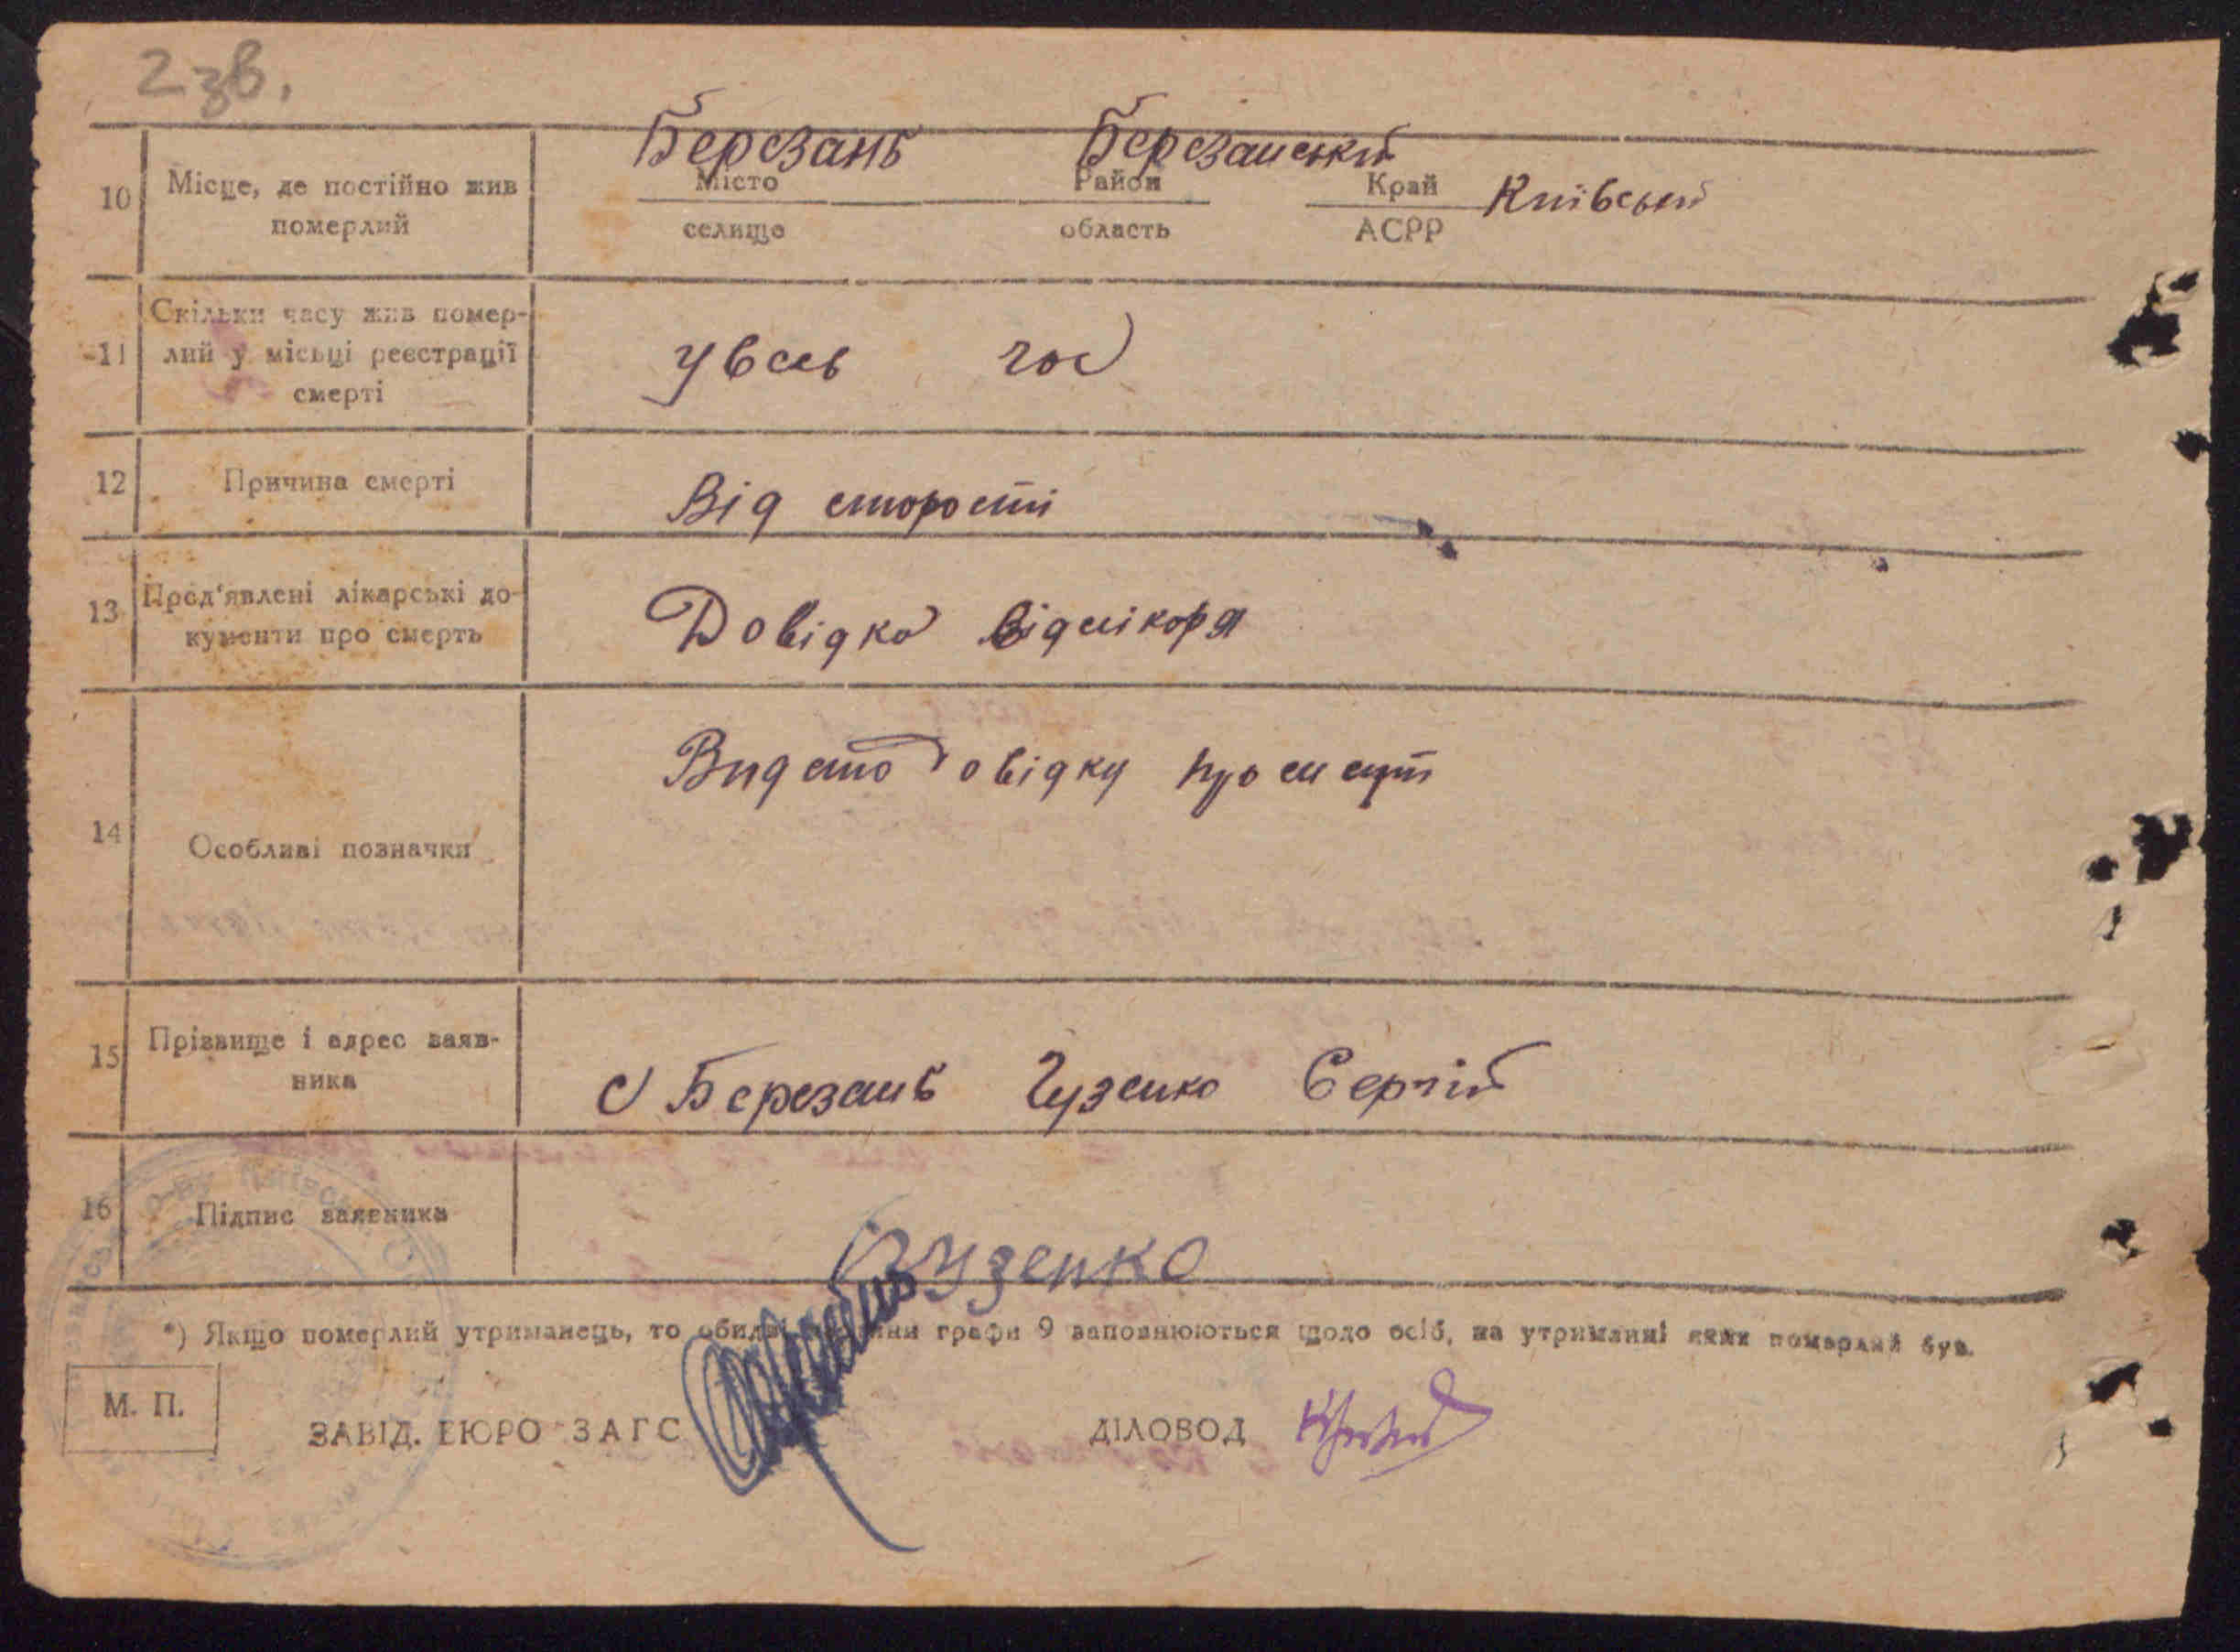 2 зв.
Березань Березанський
10 Місце, де постійно жив Місто Район Край Київський
померлий селище область АСРР
Скільки часу жив помер-
11 лий у місьці реєстрації увесь час
смерті
12 Причина смерті Від старості
13 Пред'явлені лікарські до- Довідка від лікаря
кументи про смерть
Видано довідку про смерть
14 Особливі позначки
15 Прізвище і адрес заяв- с Березань Гузенко Сергій
ника
16 Підпис заявника Гузенко
*) Якщо померлий утриманець, то обидві графи 9 заповнюються щодо осіб, на утриманні яких померлий був.
М. П.
ЗАВІД. БЮРО ЗАГС ДІЛОВОД